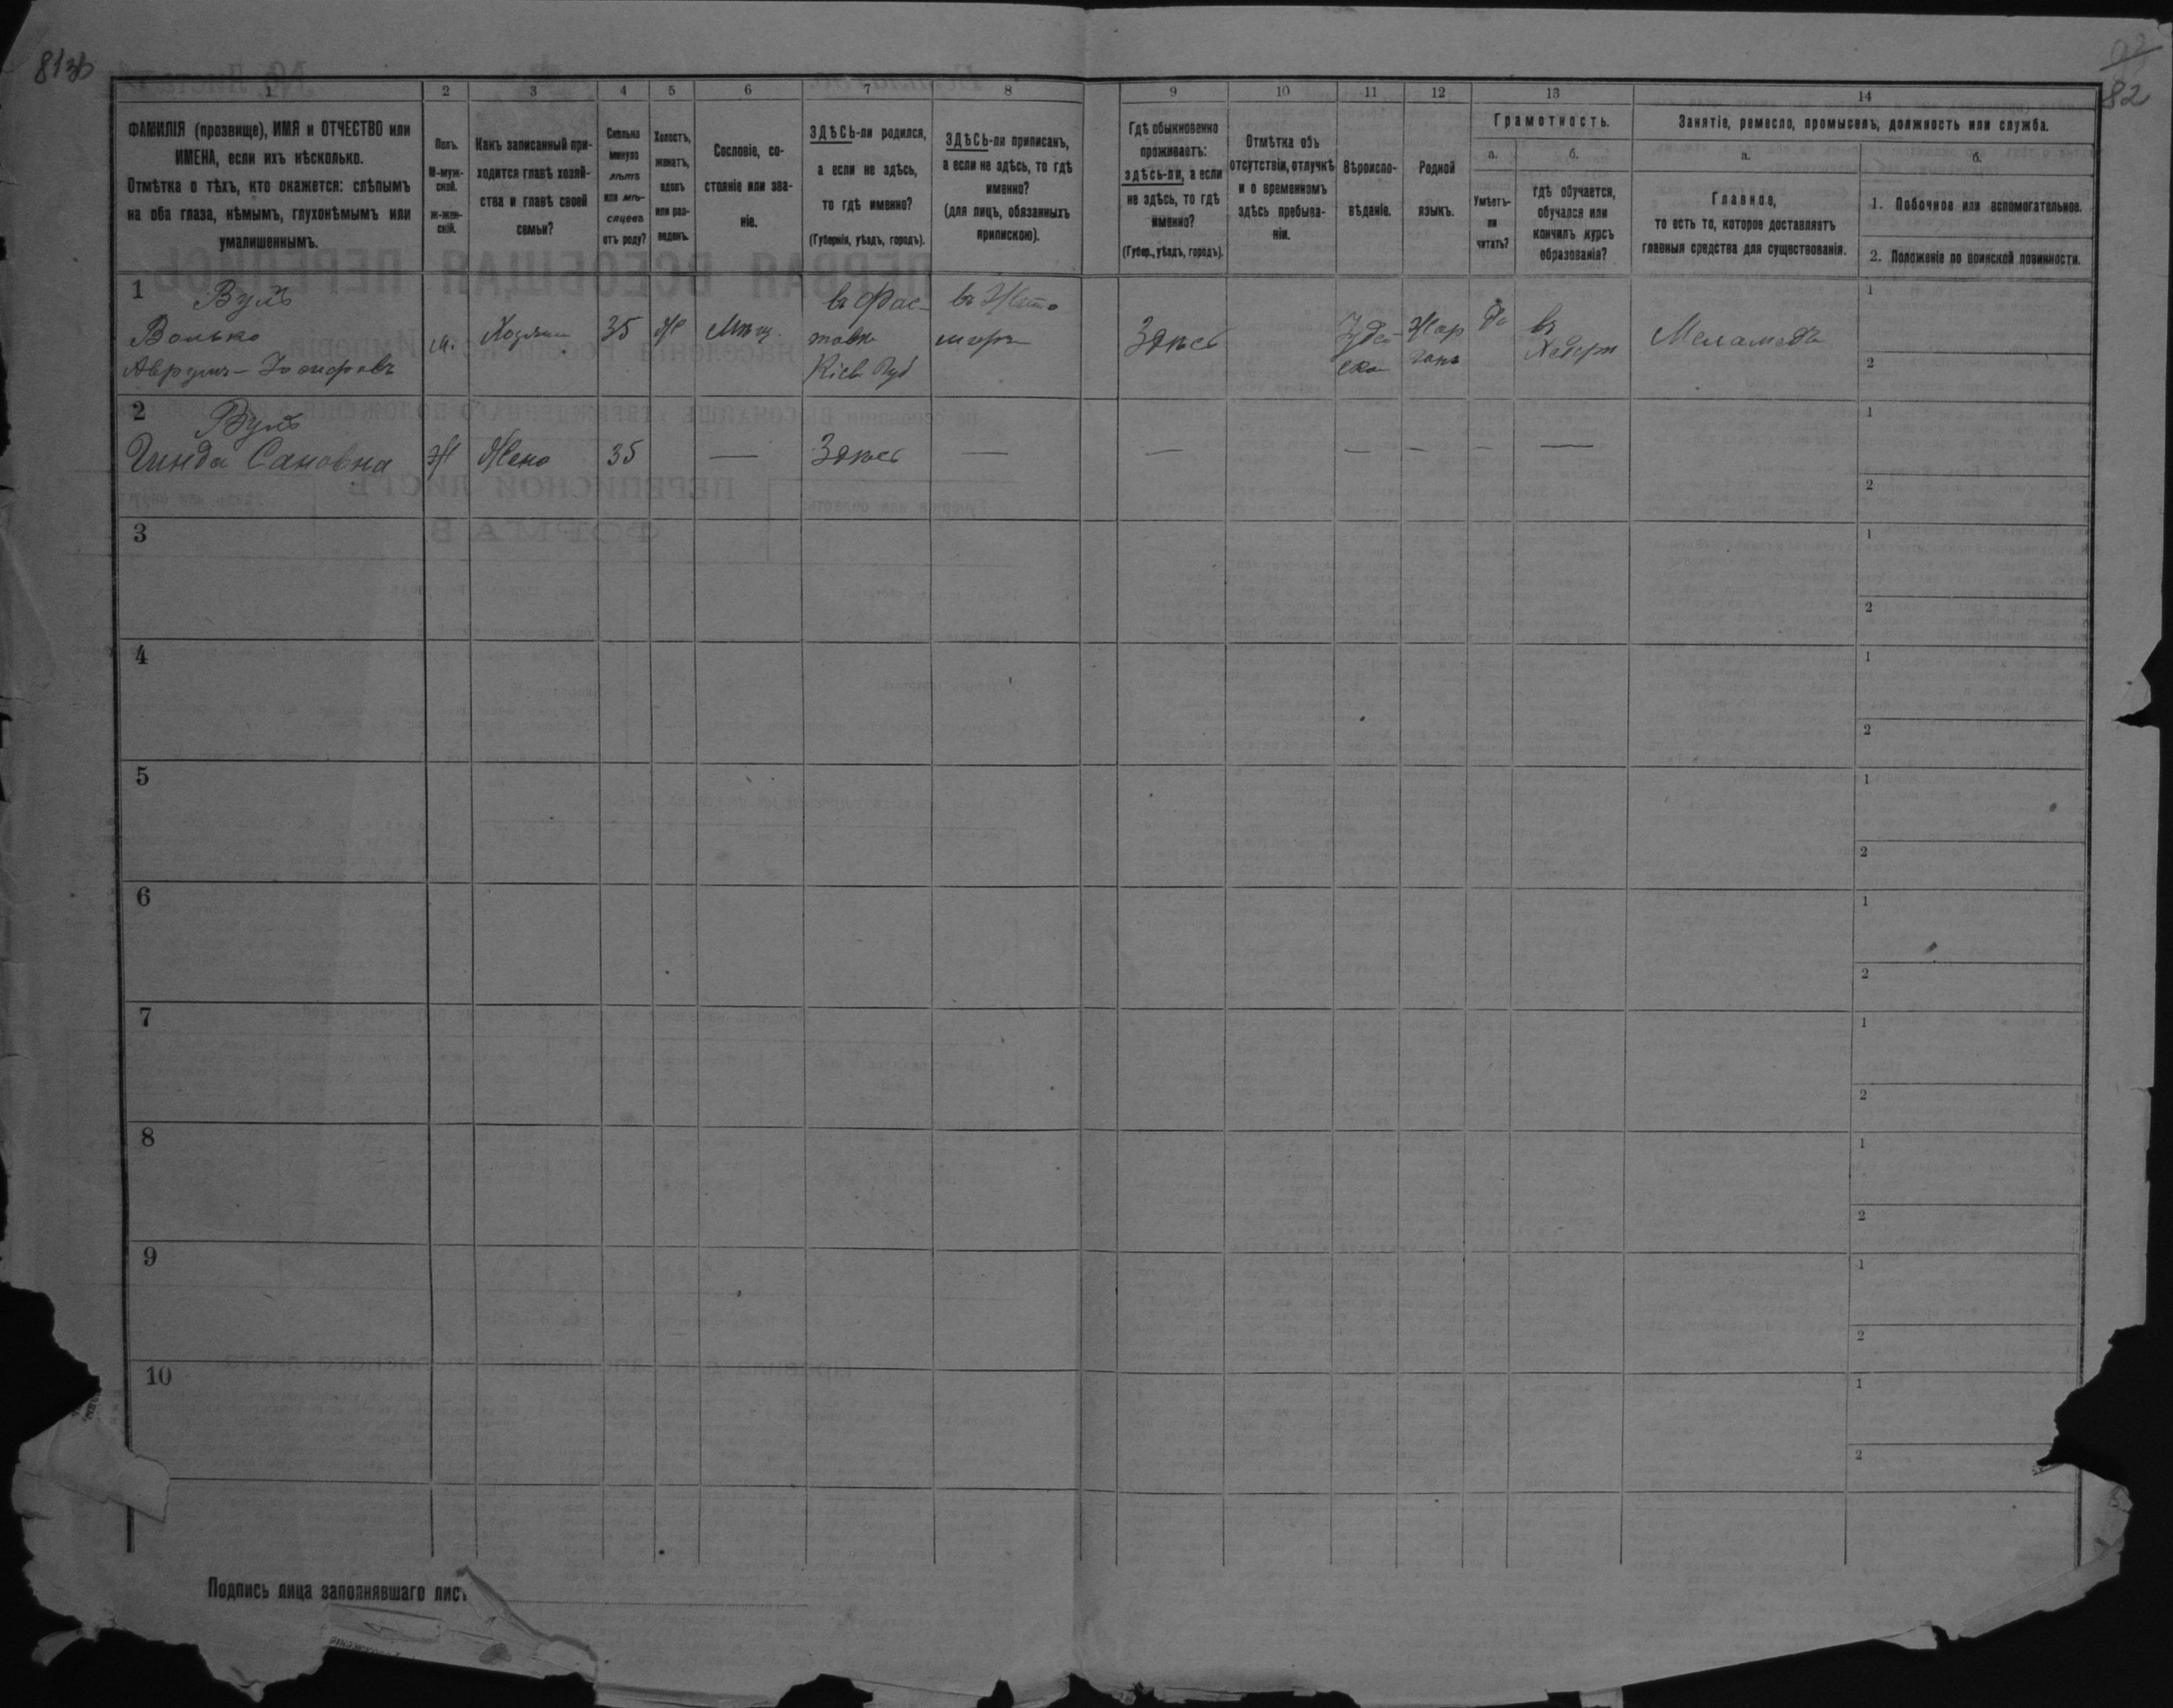 81зб
92
82
1 2 3 4 5 6 7 8 9 10 11 12 13 14
ФАМИЛІЯ (прозвище), ИМЯ и ОТЧЕСТВО или
ИМЕНА, если ихъ нѣсколько.
Отмѣтка о тѣхъ, кто окажется: слѣпымъ
на оба глаза, нѣмымъ, глухонѣмымъ или
умалишеннымъ.
Полъ.
М-муж-
ской.
ж-жен-
скій.
Какъ записанный при-
ходится главѣ хозяй-
ства и главѣ своей
семьи?
Сколько
минуло
лѣтъ
или мѣ-
сяцевъ
отъ роду?
Холостъ,
женатъ,
вдовъ
или раз-
веденъ.
Сословіе, со-
стояніе или зва-
ніе.
ЗДѢСЬ-ли родился,
а если не здѣсь,
то гдѣ именно?
(Губернія, уѣздъ, городъ).
ЗДѢСЬ-ли приписанъ,
а если не здѣсь, то гдѣ
именно?
(для лицъ, обязанныхъ
припискою).
Гдѣ обыкновенно
проживаетъ:
здѣсь-ли, а если
не здѣсь, то гдѣ
именно?
(Губер., уѣздъ, городъ).
Отмѣтка объ
отсутствіи, отлучкѣ
и о временномъ
здѣсь пребыва-
ніи.
Вѣроиспо-
вѣданіе.
Родной
языкъ.
Грамотность.
а.
Умѣетъ-
ли
читать?
б.
гдѣ обучается,
обучался или
кончилъ курсъ
образованія?
Занятіе, ремесло, промыселъ, должность или служба.
а.
Главное,
то есть то, которое доставляетъ
главныя средства для существованія.
б.
1. Побочное или вспомогательное.
2. Положеніе по воинской повинности.
1 Вулъ
Волько
Аврумъ-Іосифовъ
м.
Хозяинъ
35
Ж
Мѣщ.
въ Фас-
товѣ
Кіев. Губ
въ Жито
миръ
Здѣсь
Іудей
ская
Жар
гонъ
Да
въ
Хедерѣ
Меламедъ
1
2
2 Вулъ
Гинда Сановна
Ж
Жена
35
—
Здѣсь
—
—
—
—
—
—
1
2
3
1
2
4
1
2
5
1
2
6
1
2
7
1
2
8
1
2
9
1
2
10
1
2
Подпись лица заполнявшаго лист